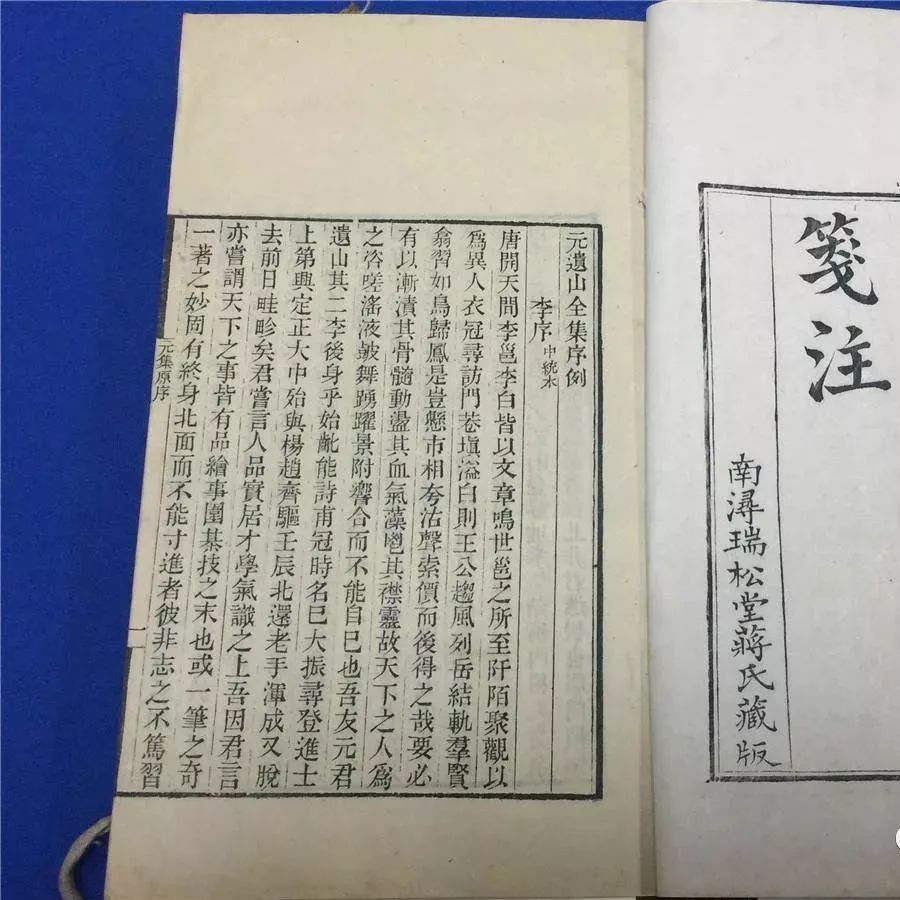 箋注
南潯瑞松堂蔣氏藏版
元遺山全集序例
李序中統本
唐開天間李邕李白皆以文章鳴世邕之所至阡陌聚觀以
爲異人衣冠尋訪門巷塡溢白則王公趨風列岳結軌羣賢
翕習如鳥歸鳳是豈懸市相夸沽聲索價而後得之哉要必
有以漸漬其骨髓動盪其血氣藻鬯其襟靈故天下之人爲
之咨嗟滛液鼓舞踴躍景附響合而不能自已也吾友元君
遺山其二李後身乎始齔能詩甫冠時名已大振尋登進士
上第興定正大中殆與楊趙齊驅壬辰北還老手渾成又脫
去前日畦畛矣君嘗言人品實居才學氣識之上吾因君言
亦嘗謂天下之事皆有品繪事圍棊技之末也或一筆之奇
一著之妙固有終身北面而不能寸進者彼非志之不篤習
元集原序
一